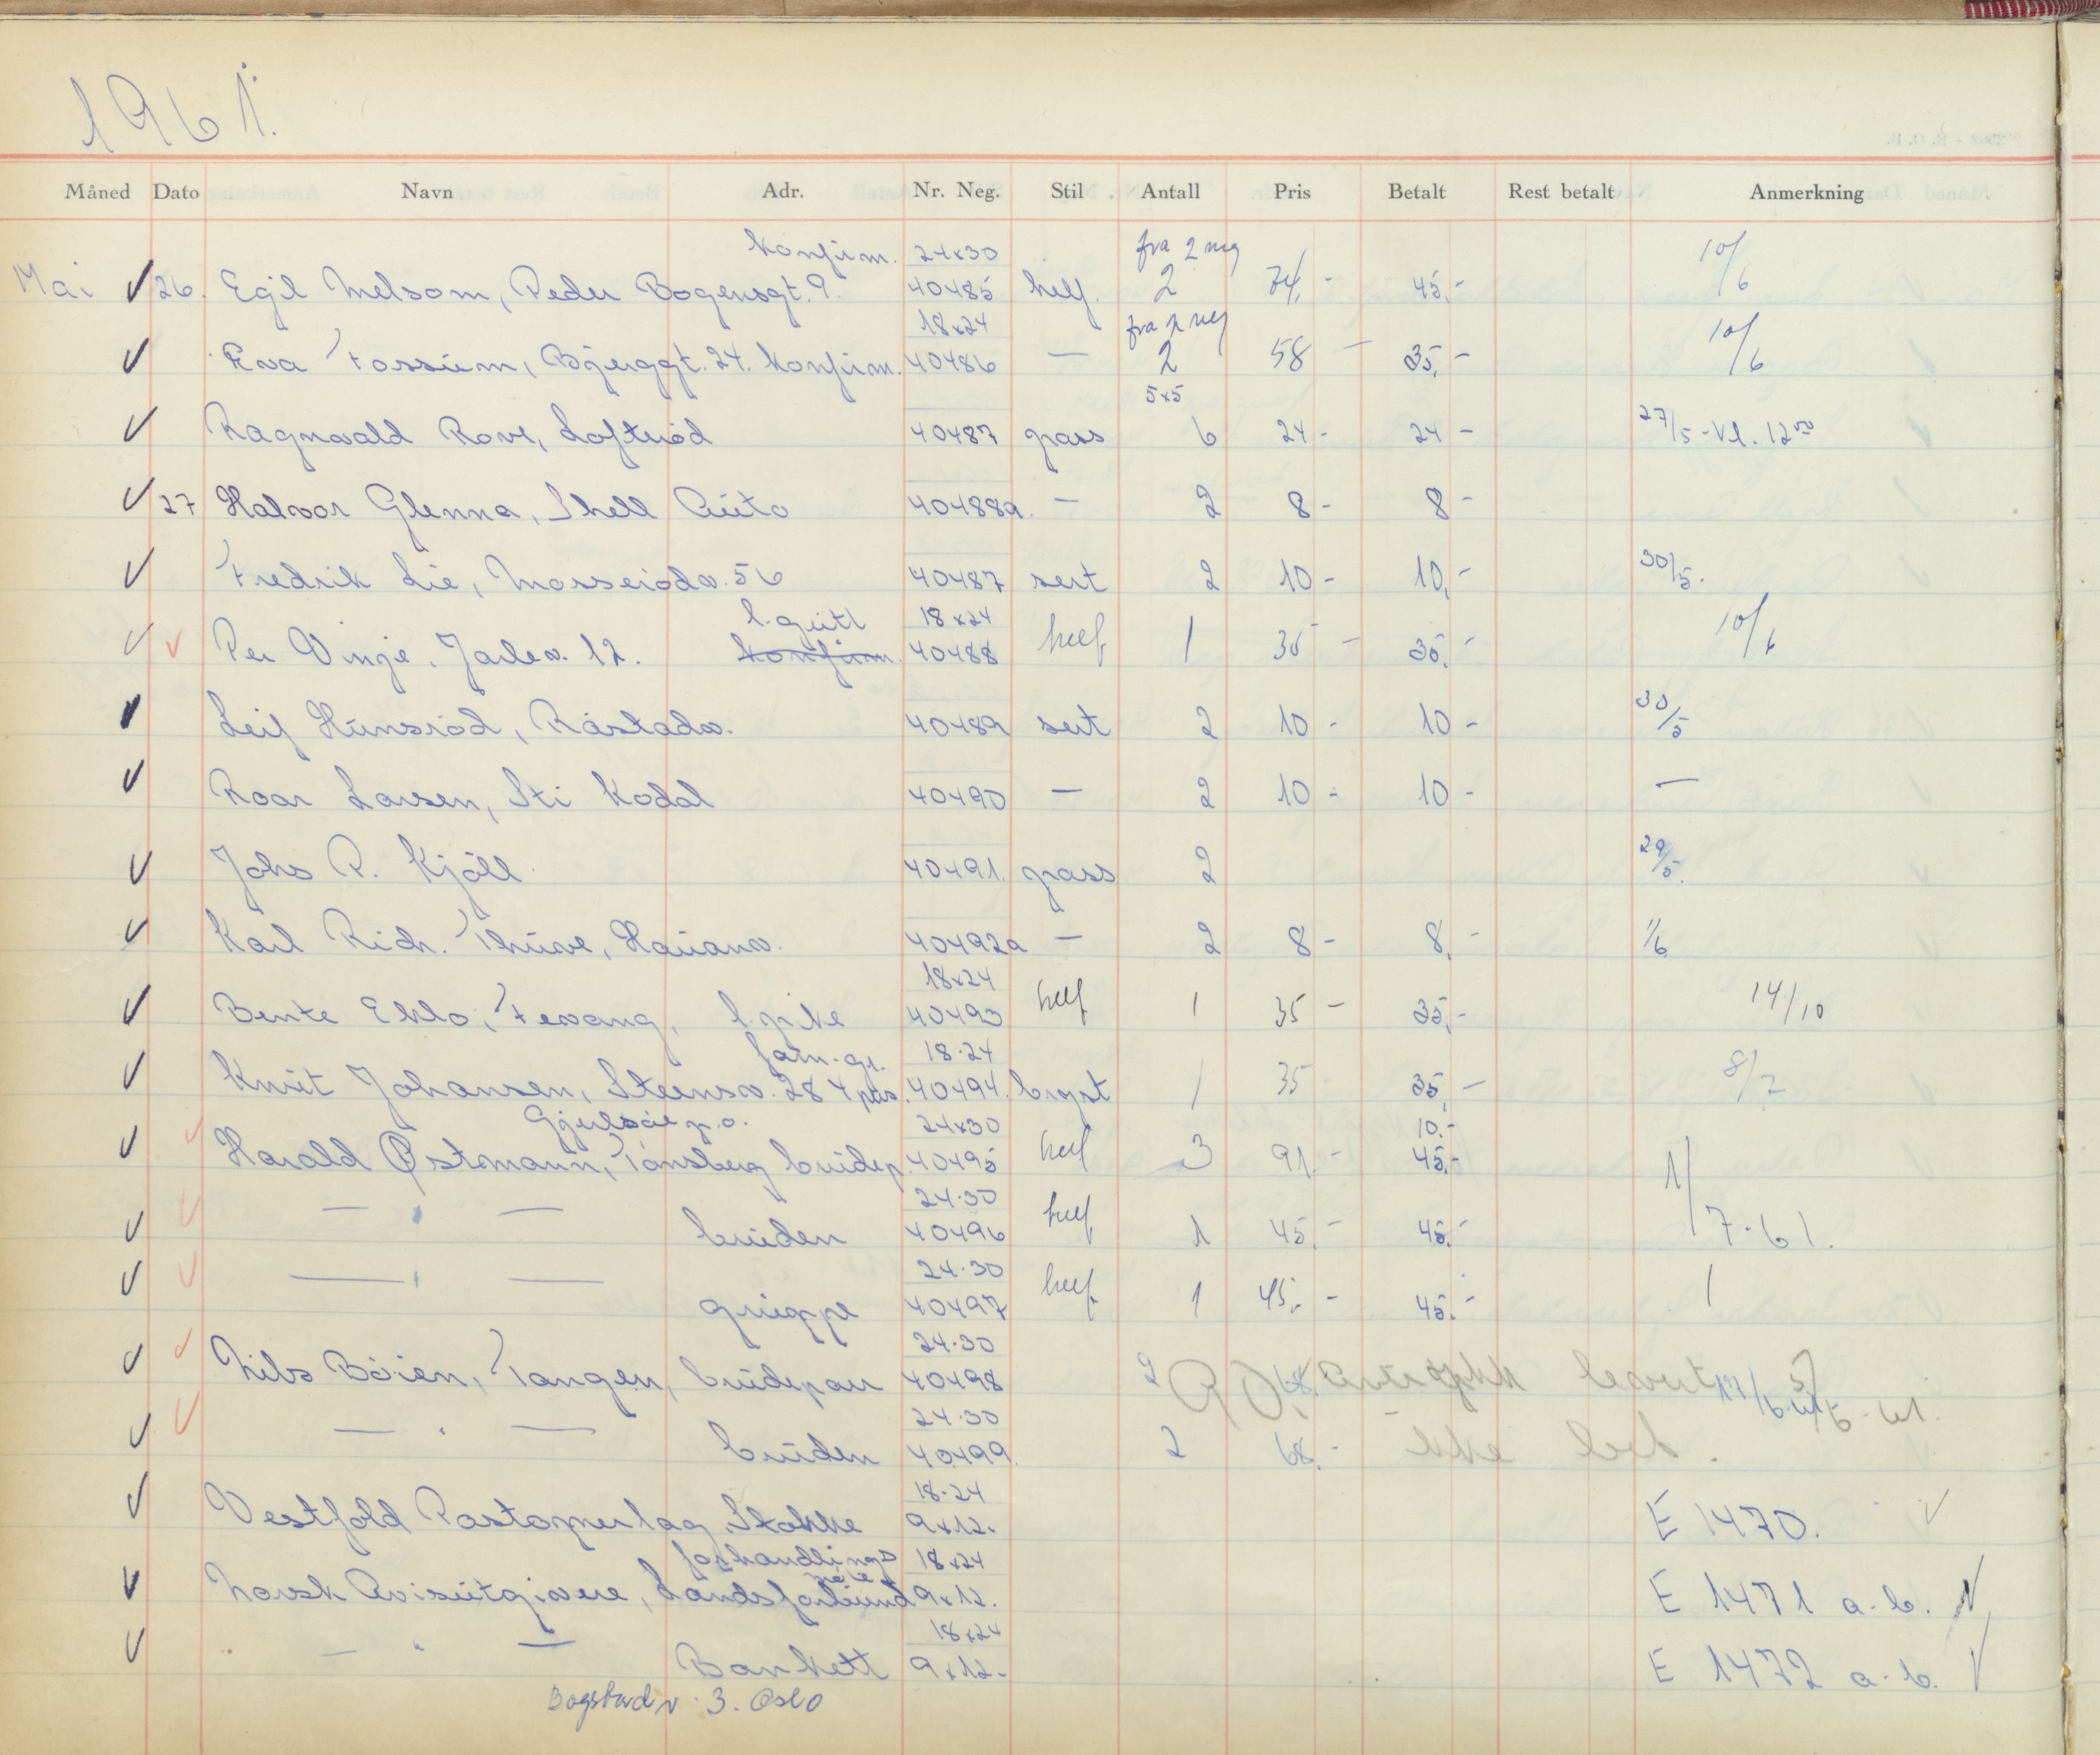 1961.
Måned Dato Navn Adr. Nr. Neg. Stil Antall Pris Betalt Rest betalt Anmerkning
konfirm. 24x30 fra 2 neg
Mai 26. Egil Melsom, Peder Bogensgt. 9. 40485 helf. 2 74,- 45,- 10/6
18x24 fra 2 neg
Eva Fossum, Bjerggt. 24. konfirm. 40486 — 2 58 - 35,- 10/6
5x5
Ragnvald Rove, Loftuød 40487 grass 6 24- 24- 27/5 - kl. 12⁰⁰
27 Halvor Glenna, Shell Auto 40488a. — 2 8- 8-
Fredrik Lie, Masserødv. 56 40487 sert 2 10- 10,- 30/5.
l. gutt 18x24
Per Vinje. Jarlev. 12. konfirm. 40488 helf 1 35 - 35,- 10/6
Leif Hunsrød, Råstadv. 40489 sert 2 10- 10- 30/5
Roar Larsen, Sti Kodal 40490 — 2 10- 10- —
Johs P. Kjøll. 40491. grass 2 29/5.
Karl Rich. Thuve, Hauanv. 40492a — 2 8- 8,- 1/6
18x24
Bente Eklo, Fevang, l. pike 40493 helf 1 35 - 35,- 14/10
fam-gr. 18·24
Knut Johansen, Steensv. 28 4 pers. 40494. bryst 1 35 35,- 8/7
p.o. 24x30 10.-
Harald Østmann, Tønsberg brudep. 40495 helf 3 91.- 45,- 1/
24·30
— " — bruden 40496 helf 1 45,- 45,- 7-61.
24·30
— " — gruppe 40497 helf 1 45,- 45,-
24·30
Nils Bøien, Tangen, brudepar 40498 2 68. levert
24·30
— " — bruden 40499. 2 68.- Ikke
18·24
Vestfold Pastagnerlag, Stokke 9x12. E 1470.
forhandlings 18x24
møte
Norsk Avisutgivere, Landsforbund 9x12. E 1471 a-b.
18x24
— " — Bankett 9x12. E 1472 a-b.
Bogstadv. 3. Oslo